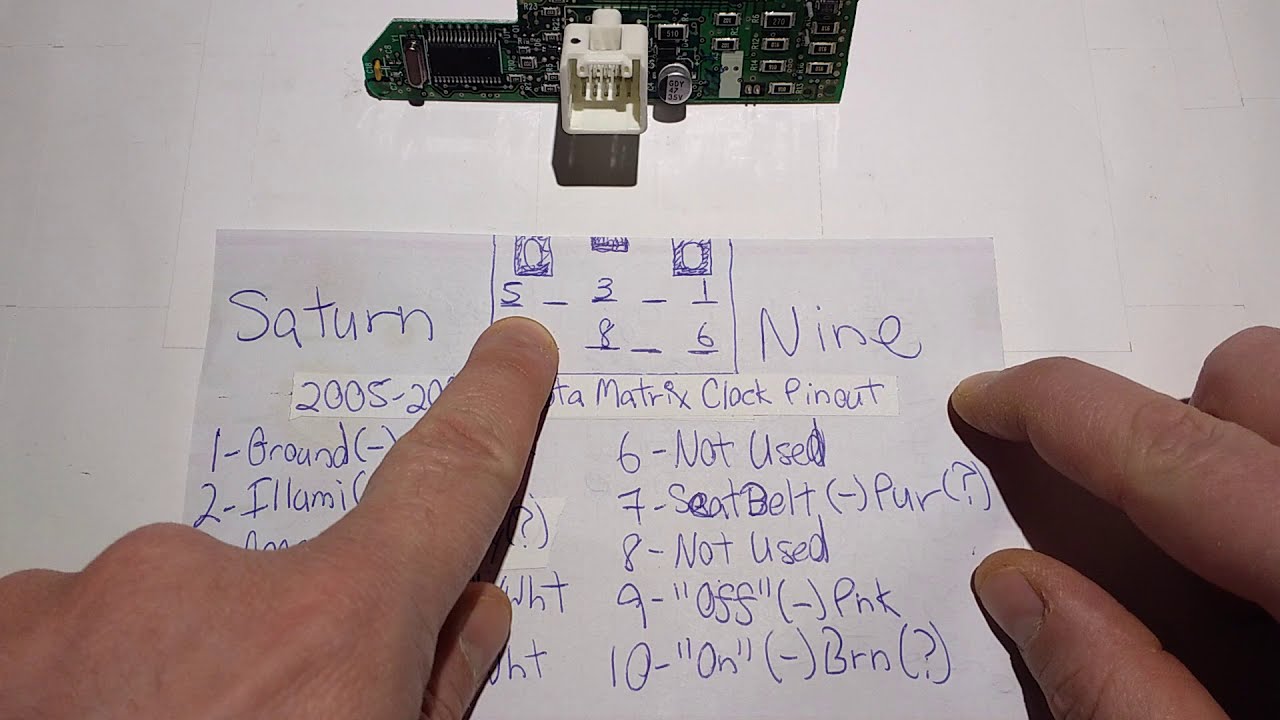 R23
270
R6
510
R12
R14
GDY
35V
5 _ 3 _ 1
8 _ 6
Saturn Nine
2005-20 ta Matrix Clock Pinout
1-Ground(-)
2-Illumi(
(?)
Wht
ht
6-Not Used
7-SeatBelt(-)Pur(?)
8-Not Used
9-"Off"(-)Pnk
10-"On"(-)Brn(?)